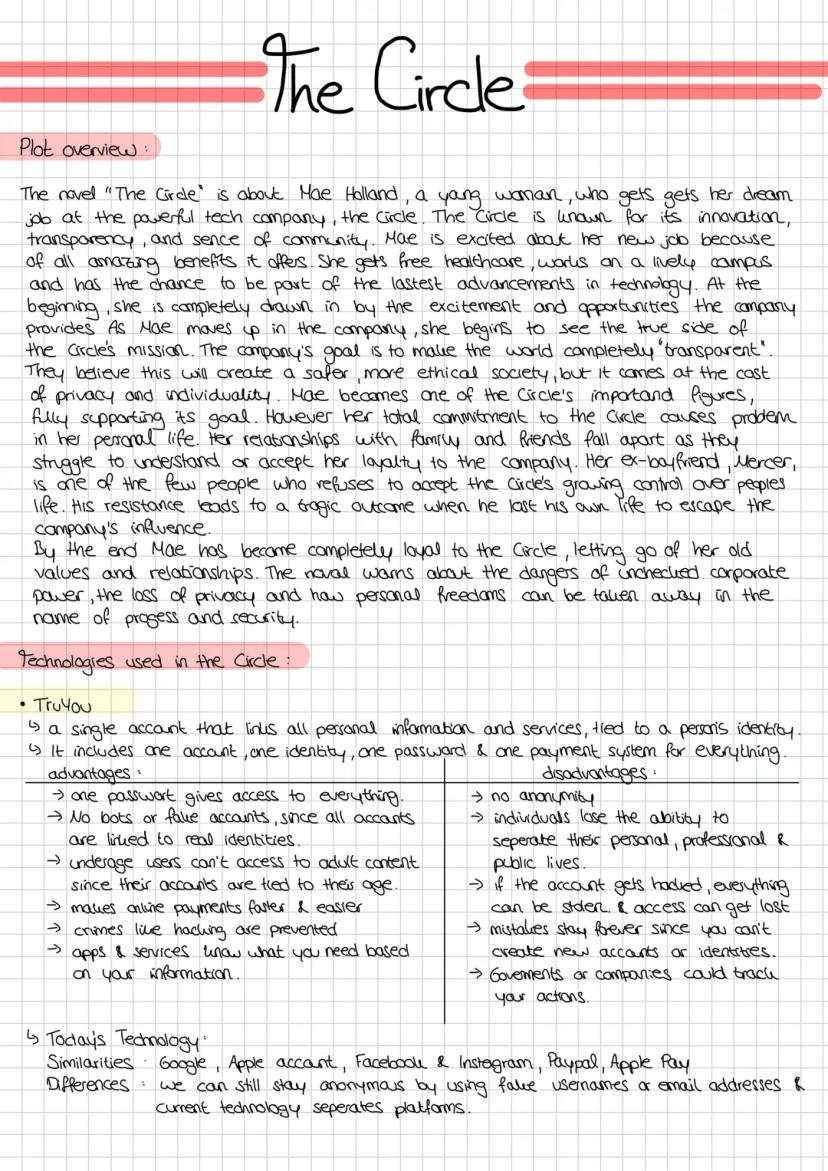 The Circle
Plot overview :
The novel "The Circle" is about Mae Holland, a young woman, who gets gets her dream
job at the powerful tech company, the Circle. The Circle is known for its innovation,
transparency, and sence of community. Mae is excited about her new job because
of all amazing benefits it offers. She gets free healthcare, works on a lively campus
and has the chance to be part of the lastest advancements in technology. At the
beginning, she is completely drawn in by the excitement and opportunities the company
provides As Mae moves up in the company, she begins to see the true side of
the Circle's mission. The company's goal is to make the world completely "transparent".
They believe this will create a safer, more ethical society, but it comes at the cost
of privacy and individuality. Mae becomes one of the Circle's importand figures,
fully supporting its goal. However her total commitment to the Circle causes problem
in her personal life. Her relationships with family and friends fall apart as they
struggle to understand or accept her loyalty to the company. Her ex-boyfriend, Mercer,
is one of the few people who refuses to accept the Circle's growing control over peoples
life. His resistance leads to a tragic outcome when he lost his own life to escape the
company's influence.
By the end Mae has become completely loyal to the Circle, letting go of her old
values and relationships. The novel warns about the dangers of unchecked corporate
power, the loss of privacy and how personal freedoms can be taken away in the
name of progess and security.
Technologies used in the Circle :
• TruYou
↳ a single account that links all personal information and services, tied to a person's identity.
↳ It includes one account, one identity, one password & one payment system for everything.
advantages : disadvantages :
→ one passwort gives access to everything.
→ No bots or fake accounts, since all accounts
are linked to real identities.
→ underage users can't access to adult content
since their accounts are tied to their age.
→ makes online payments faster & easier
→ crimes like hacking are prevented
→ apps & services know what you need based
on your information.
→ no anonymity
→ individuals lose the ability to
seperate their personal, professional &
public lives.
→ if the account gets hacked, everything
can be stolen. & access can get lost
→ mistakes stay forever since you can't
create new accounts or identities.
→ Governments or companies could track
your actions.
↳ Today's Technology:
Similarities : Google, Apple account, Facebook & Instagram, Paypal, Apple Pay
Differences : we can still stay anonymous by using fake usernames or email addresses &
current technology seperates platforms.